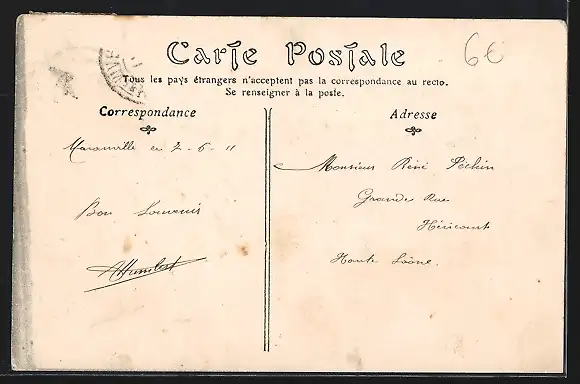 Carte Postale
6€
Tous les pays étrangers n'acceptent pas la correspondance au recto.
Se renseigner à la poste.
Correspondance
Adresse
Maranville le 2-6-11
Bon Souvenir
AHumbert
Monsieur René Péchin
Grande Rue
Héricourt
Haute Saône.